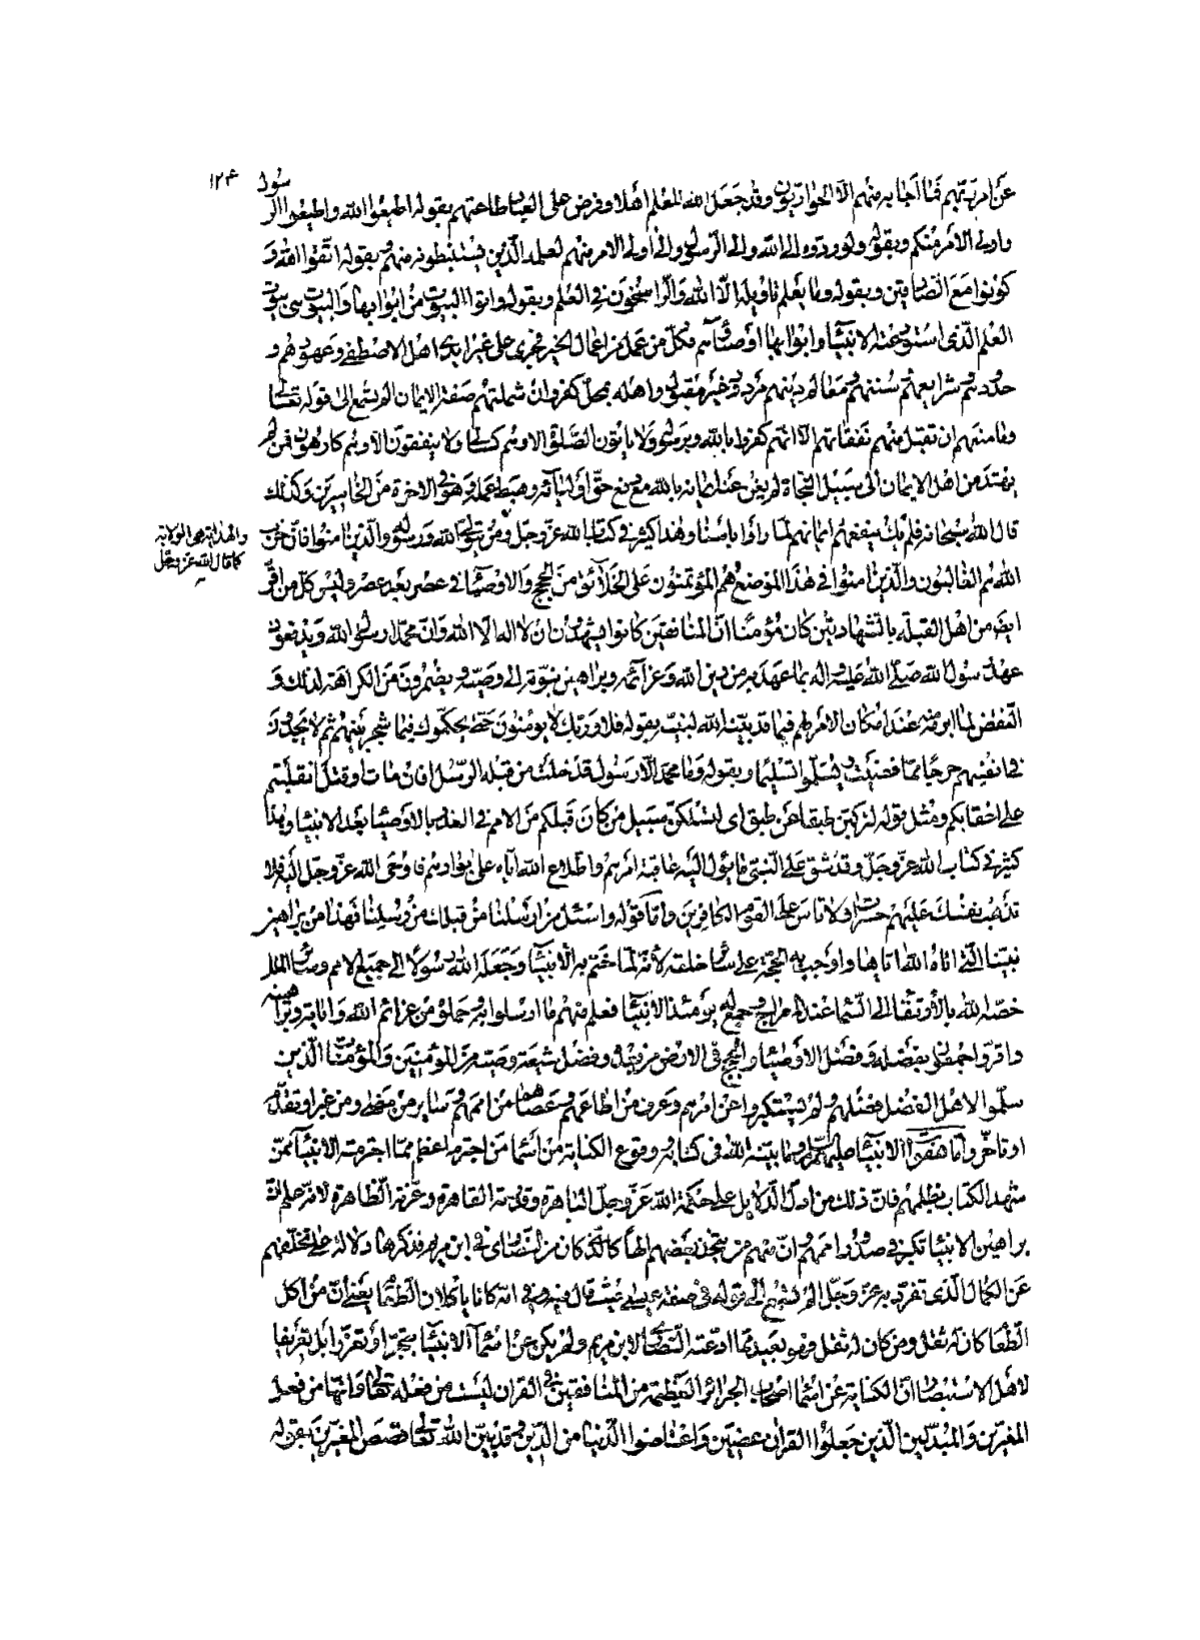 ١٢٤
عن امر ربهم فما اجابه منهم الا الحواريون وقد جعل الله للعلم اهلا وفرض على العباد طاعتهم بقوله اطيعوا الله واطيعوا الرسول
واولى الامر منكم وبقوله ولو ردوه الى الله والى الرسول والى اولى الامر منهم لعلمه الذين يستنبطونه منهم وبقوله اتقوا الله و
كونوا مع الصادقين وبقوله وما يعلم تاويله الا الله والراسخون فى العلم وبقوله واتوا البيوت من ابوابها والبيوت هى بيوت
العلم الذى استودعته الانبياء وابوابها اوصيائهم فكل من عمل من اعمال الخير فجرى على غير ايدى اهل الاصطفاء وعهودهم و
حدودهم وشرايعهم وسننهم ومعالم دينهم مردود غير مقبول واهله بمحل كفر وان شملتهم صفة الايمان الم تسمع الى قوله تعالى
وما منعهم ان تقبل منهم نفقاتهم الا انهم كفروا بالله وبرسوله ولا ياتون الصلوة الا وهم كسالى ولا ينفقون الا وهم كارهون فمن لم
يهتد من اهل الايمان الى سبيل النجاة لم يغن عنه ايمانه بالله مع دفع حق اوليائه وحبط عمله وهو فى الاخرة من الخاسرين وكذلك
قال الله سبحانه فلم يك ينفعهم ايمانهم لما راوا باسنا وهذا كثير فى كتاب الله عز وجل ومن يتول الله ورسوله والذين امنوا فان حزب
والهداية هى الولاية
كما قال الله عز وجل
الله هم الغالبون والذين امنوا فى هذا الموضع هم المؤتمنون على الخلائق من الحجج والاوصياء فى عصر بعد عصر وليس كل من اقر
ايضا من اهل القبلة بالشهادتين كان مؤمنا ان المنافقين كانوا يشهدون ان لا اله الا الله وان محمدا رسول الله ويدفعون
عهد رسول الله صلى الله عليه واله بما عهد به من دين الله وعزائمه وبراهين نبوته الى وصيه ويضمرون من الكراهة لذلك و
النقض لما ابرمه عند امكان الامر لهم فيما قد بينه الله لنبيه بقوله فلا وربك لا يومنون حتى يحكموك فيما شجر بينهم ثم لا يجدوا
فى انفسهم حرجا مما قضيت ويسلموا تسليما وبقوله وما محمد الا رسول قد خلت من قبله الرسل افان مات او قتل انقلبتم
على اعقابكم ومثل قوله لتركبن طبقا عن طبق اى لتسلكن سبيل من كان قبلكم من الامم فى الغدر بالاوصياء بعد الانبياء وهذا
كثير فى كتاب الله عز وجل وقد شق على النبى ما يؤل اليه عاقبة امرهم واطلاع الله اياه على بوارهم فاوحى الله عز وجل اليه فلا
تذهب نفسك عليهم حسرات ولا تاس على القوم الكافرين واما قوله واسئل من ارسلنا من قبلك من رسلنا فهذا من براهين
نبينا التى اتاه الله اياها واوجب به الحجة على سائر خلقه لانه لما ختم به الانبياء وجعله الله رسولا الى جميع الامم وسائر الملل
خصه الله بالارتقاء الى السماء عند المعراج وجمع له يومئذ الانبياء فعلم منهم ما ارسلوا به وحملوه من عزائم الله واياته وبراهينه
واقروا اجمعون بفضله وفضل الاوصياء والحجج فى الارض من بعده وفضل شيعة وصيه من المؤمنين والمؤمنات الذين
سلموا لاهل الفضل فضلهم ولم يستكبروا عن امرهم وعرف من اطاعهم وعصاهم من اممهم وساير من مضى ومن غبر او تقدم
او تاخر واما هفوات الانبياء عليهم السلام وما بينه الله فى كتابه ووقوع الكناية من اسماء من اجترم اعظم مما اجترمته الانبياء ممن
شهد الكتاب بظلمهم فان ذلك من ادل الدلايل على حكمة الله عز وجل الباهرة وقدرته القاهرة وعزته الظاهرة لانه علم ان
براهين الانبياء تكبر فى صدور اممهم وان منهم من يتخذ بعضهم الها كالذى كان من النصارى فى ابن مريم فذكرها دلالة على تخلفهم
عن الكمال الذى تفرد به عز وجل الم تسمع الى قوله فى صفة عيسى حيث قال فيه وفى امه كانا ياكلان الطعام يعنى ان من اكل
الطعام كان له ثقل ومن كان له ثقل فهو بعيد مما ادعته النصارى لابن مريم ولم يكن عن اسماء الانبياء تجبرا وتعززا بل تعريفا
لاهل الاستبصار ان الكناية عن اسماء اصحاب الجرائر العظيمة من المنافقين فى القران ليست من فعله تعالى وانها من فعل
المغيرين والمبدلين الذين جعلوا القران عضين واعتاضوا الدنيا من الدين وقد بين الله تعالى قصص المغيرين بقوله